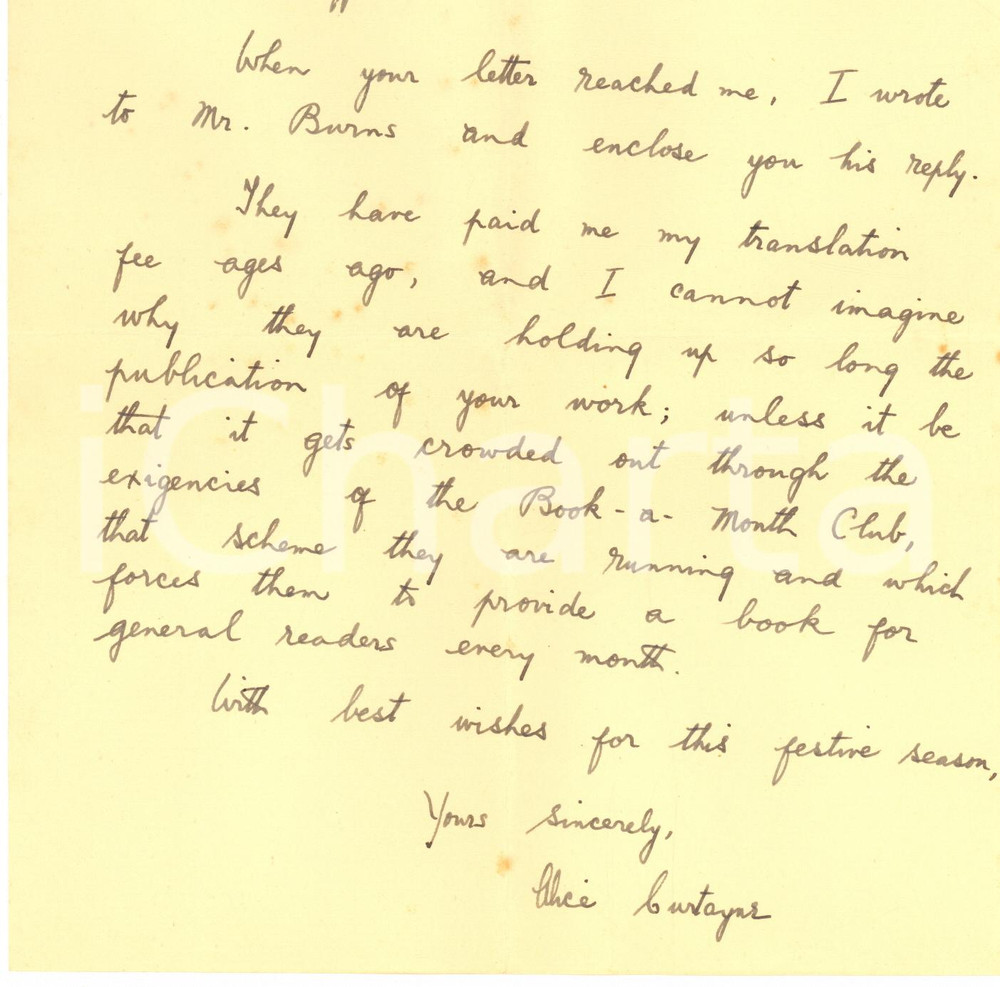 When your letter reached me, I wrote
to Mr. Burns and enclose you his reply.
They have paid me my translation
fee ages ago, and I cannot imagine
why they are holding up so long the
publication of your work; unless it be
that it gets crowded out through the
exigencies of the Book-a-Month Club,
that scheme they are running and which
forces them to provide a book for
general readers every month.
With best wishes for this festive season,
Yours sincerely,
Alice Curtayne
iCharta